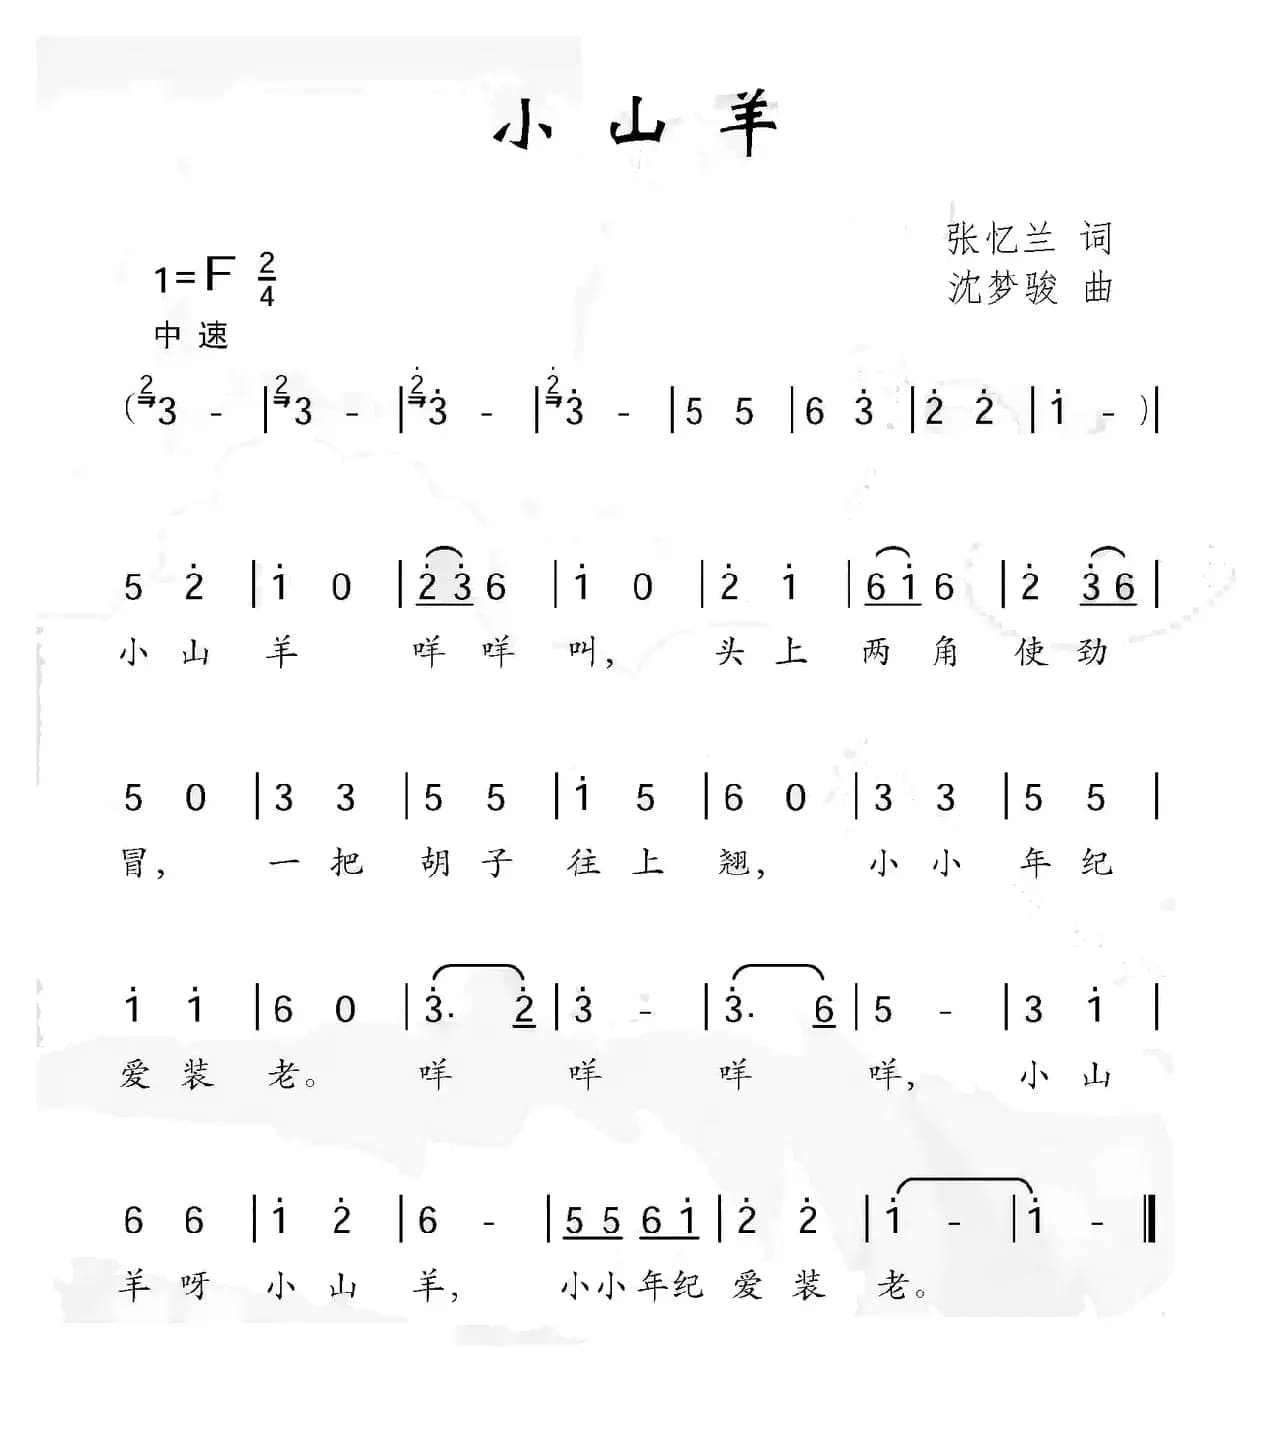 小山羊
张忆兰 词
1=F 2/4
沈梦骏 曲
中速
(²3 - | ²3 - | ²̇3̇ - | ²̇3̇ - | 5 5 | 6 3̇ | 2̇ 2̇ | 1̇ - )|
5 2̇ | 1̇ 0 | 2̇ 3̇ 6 | 1̇ 0 | 2̇ 1̇ | 6 1̇ 6 | 2̇ 3̇ 6 |
小 山 羊 咩 咩 叫, 头 上 两 角 使 劲
5 0 | 3 3 | 5 5 | 1̇ 5 | 6 0 | 3 3 | 5 5 |
冒, 一 把 胡 子 往 上 翘, 小 小 年 纪
1̇ 1̇ | 6 0 | 3̇. 2̇ | 3̇ - | 3̇. 6 | 5 - | 3 1̇ |
爱 装 老。 咩 咩 咩 咩, 小 山
6 6 | 1̇ 2̇ | 6 - | 5 5 6 1̇ | 2̇ 2̇ | 1̇ - | 1̇ - ‖
羊 呀 小 山 羊, 小小 年纪 爱 装 老。